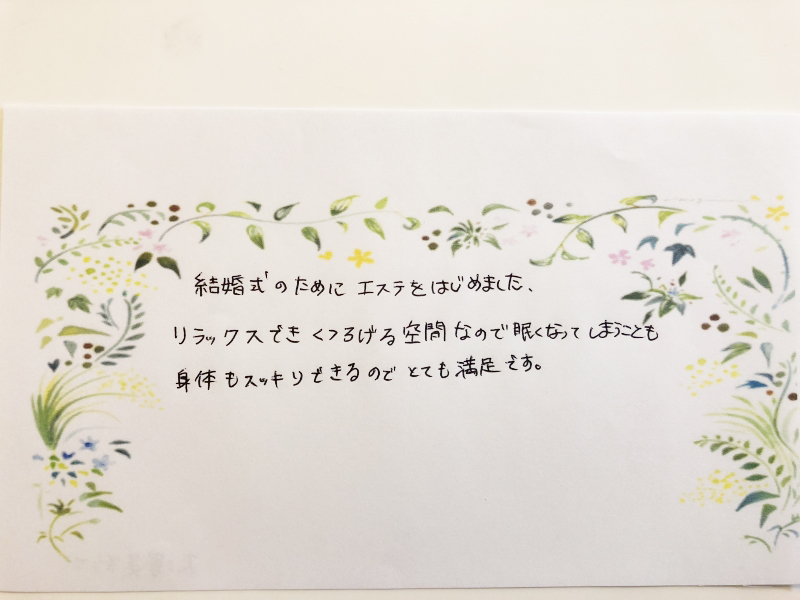 結婚式のために エステをはじめました、
リラックスでき くつろげる空間なので眠くなってしまうことも
身体もスッキリできるので とても満足です。